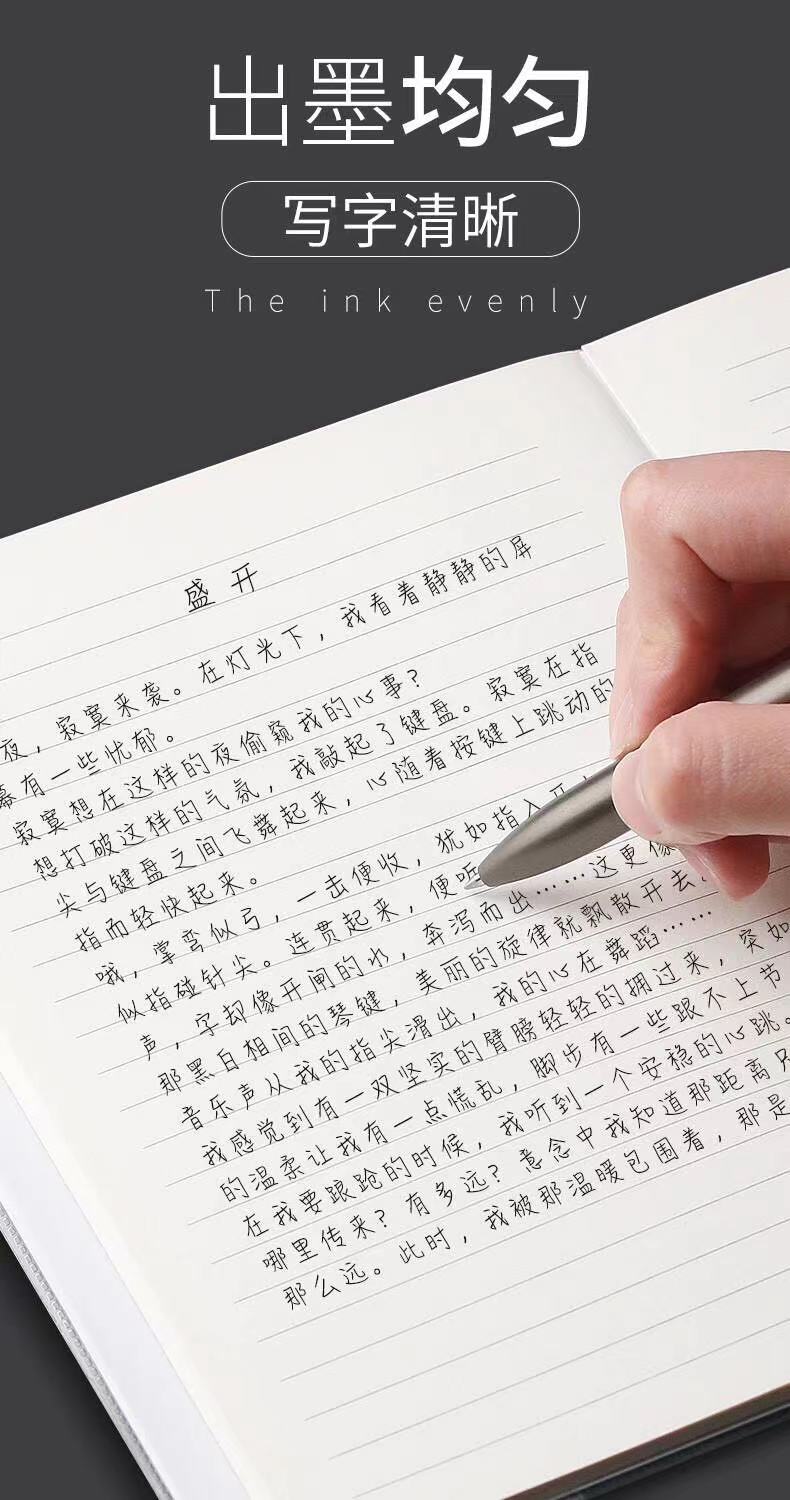 出墨均匀
写字清晰
The ink evenly
盛开
夜，寂寞来袭。在灯光下，我看着静静的屏
幕有一些忧郁。
寂寞想在这样的夜偷窥我的心事？
想打破这样的气氛，我敲起了键盘。寂寞在指
尖与键盘之间飞舞起来，心随着按键上跳动的
指而轻快起来。
哦，掌弯似弓，一击便收，犹如指入
似指碰针尖。连贯起来，便听
声，字却像开闸的水，奔泻而出……这更像
那黑白相间的琴键，美丽的旋律就飘散开去
音乐声从我的指尖滑出，我的心在舞蹈……
我感觉到有一双坚实的臂膀轻轻的拥过来，突如
的温柔让我有一点慌乱，脚步有一些跟不上节
在我要踉跄的时候，我听到一个安稳的心跳。
哪里传来？有多远？意念中我知道那距离只
那么远。此时，我被那温暖包围着，那是